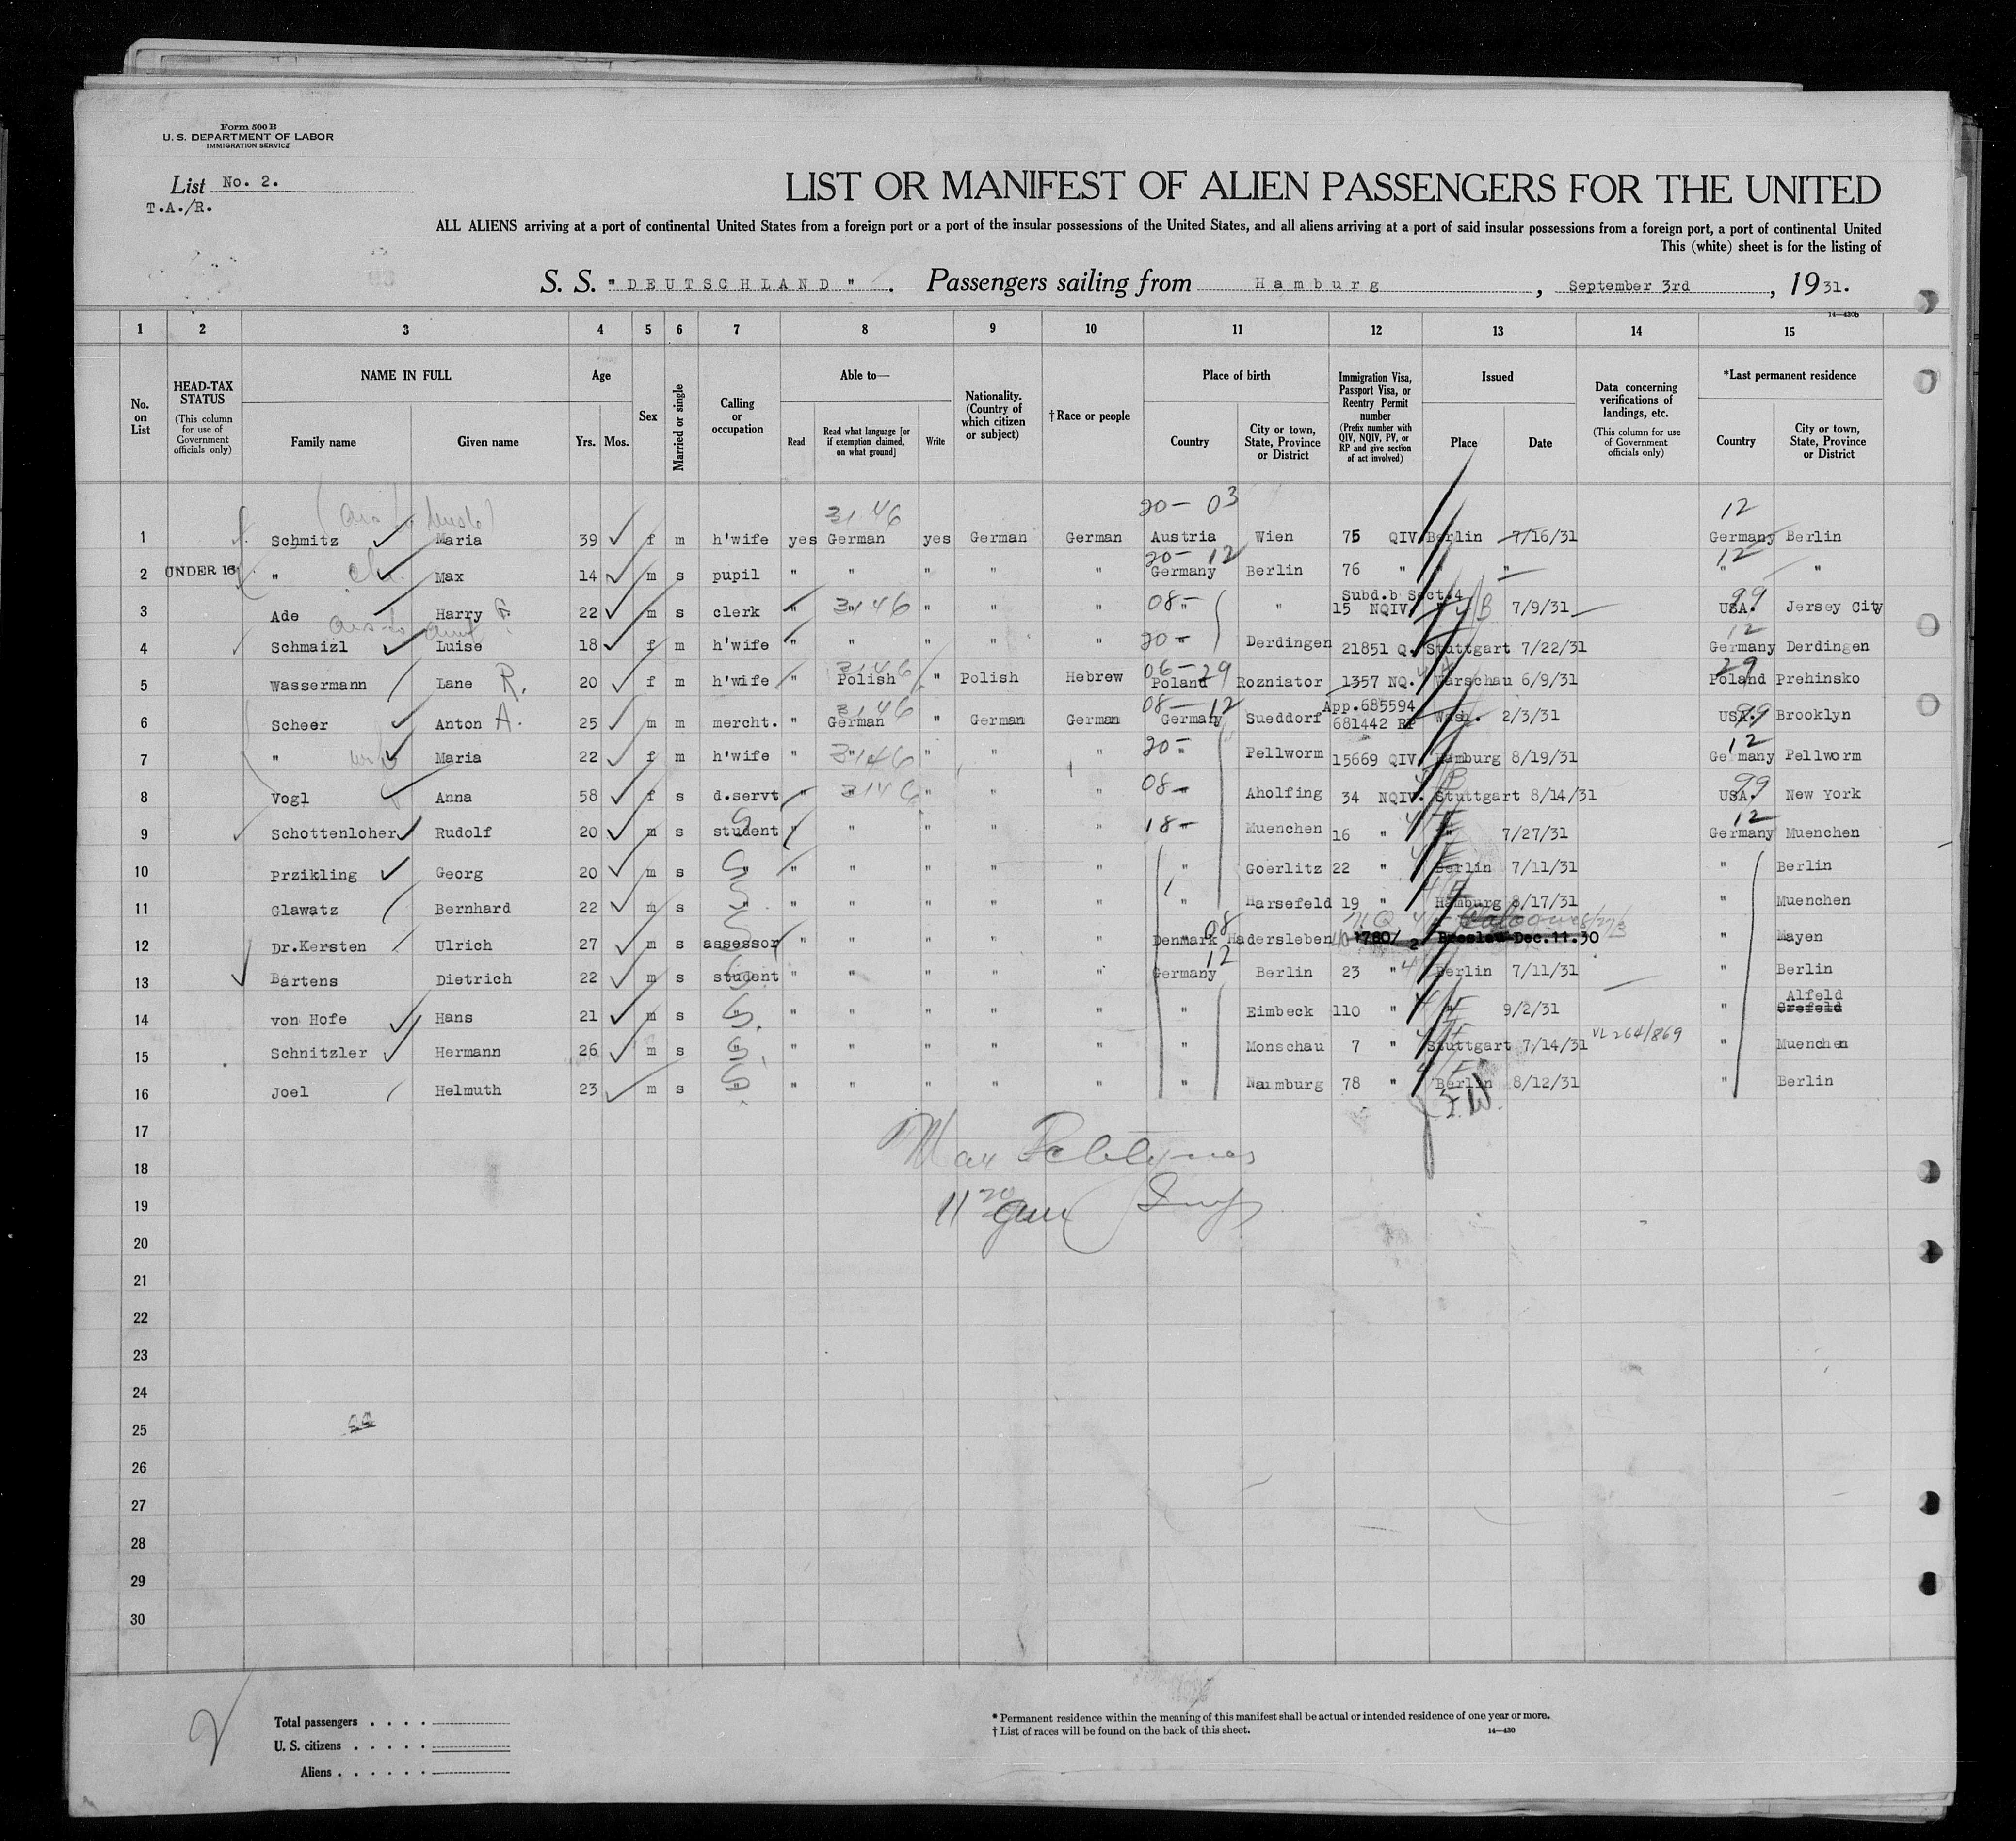 Form 500 B
U. S. DEPARTMENT OF LABOR
IMMIGRATION SERVICE
List No. 2.
T.A./R.
LIST OR MANIFEST OF ALIEN PASSENGERS FOR THE UNITED
ALL ALIENS arriving at a port of continental United States from a foreign port or a port of the insular possessions of the United States, and all aliens arriving at a port of said insular possessions from a foreign port, a port of continental United
This (white) sheet is for the listing of
S. S. "DEUTSCHLAND". Passengers sailing from Hamburg, September 3rd, 1931.
14—430b
1 2 3 4 5 6 7 8 9 10 11 12 13 14 15
No. on List
HEAD-TAX STATUS (This column for use of Government officials only)
NAME IN FULL Family name Given name
Age Yrs. Mos.
Sex
Married or single
Calling or occupation
Able to— Read Read what language [or if exemption claimed, on what ground] Write
Nationality. (Country of which citizen or subject)
† Race or people
Place of birth Country City or town, State, Province or District
Immigration Visa, Passport Visa, or Reentry Permit number (Prefix number with QIV, NQIV, PV, or RP and give section of act involved)
Issued Place Date
Data concerning verifications of landings, etc. (This column for use of Government officials only)
*Last permanent residence Country City or town, State, Province or District
31 46 20 - 03 12
1 Schmitz Maria 39 f m h'wife yes German yes German German Austria Wien 75 QIV Berlin 7/16/31 Germany Berlin
20 - 12 12
2 UNDER 16 " Max 14 m s pupil " " " " " Germany Berlin 76 " " " " "
Subd.b Sect.4
3 Ade Harry 22 m s clerk " " 3146 " " " 08 - " " 15 NQIV. " 7/9/31 99 USA. Jersey City
12
4 Schmaizl Luise 18 f m h'wife " " " " " 20 - " Derdingen 21851 Q. Stuttgart 7/22/31 Germany Derdingen
3146 06 - 29 29
5 Wassermann Lane R. 20 f m h'wife " Polish " Polish Hebrew Poland Rozniator 1357 NQ. Warschau 6/9/31 Poland Prehinsko
3146 08 - 12 App.685594
6 Scheer Anton A. 25 m m mercht. " German " German German Germany Sueddorf 681442 RP Wash. 2/3/31 USA. 99 Brooklyn
12
7 " Maria 22 f m h'wife " " 3146 " " " 20 - " Pellworm 15669 QIV Hamburg 8/19/31 Germany Pellworm
8 Vogl Anna 58 f s d.servt " " 3146 " " " 08 - " Aholfing 34 NQIV. Stuttgart 8/14/31 99 USA. New York
12
9 Schottenloher Rudolf 20 m s student " " " " " 18 - " Muenchen 16 " " 7/27/31 Germany Muenchen
10 Przikling Georg 20 m s " " " " " " " Goerlitz 22 " Berlin 7/11/31 " Berlin
11 Glawatz Bernhard 22 m s " " " " " " " Harsefeld 19 " Hamburg 8/17/31 " Muenchen
08
12 Dr.Kersten Ulrich 27 m s assessor " " " " " Denmark Hadersleben 1780/ 2 Breslau Dec.11.30 " Mayen
12
13 Bartens Dietrich 22 m s student " " " " " Germany Berlin 23 " Berlin 7/11/31 " Berlin
Alfeld
14 von Hofe Hans 21 m s " " " " " " Eimbeck 110 " " 9/2/31 " Crefeld
15 Schnitzler Hermann 26 m s " " " " " " Monschau 7 " Stuttgart 7/14/31 VL 264/869 " Muenchen
16 Joel Helmuth 23 m s " " " " " " Naumburg 78 " Berlin 8/12/31 " Berlin
17
18
19
20
21
22
23
24
25
26
27
28
29
30
Total passengers . . . .
U. S. citizens . . . . .
Aliens . . . . . .
* Permanent residence within the meaning of this manifest shall be actual or intended residence of one year or more.
† List of races will be found on the back of this sheet.
14—430